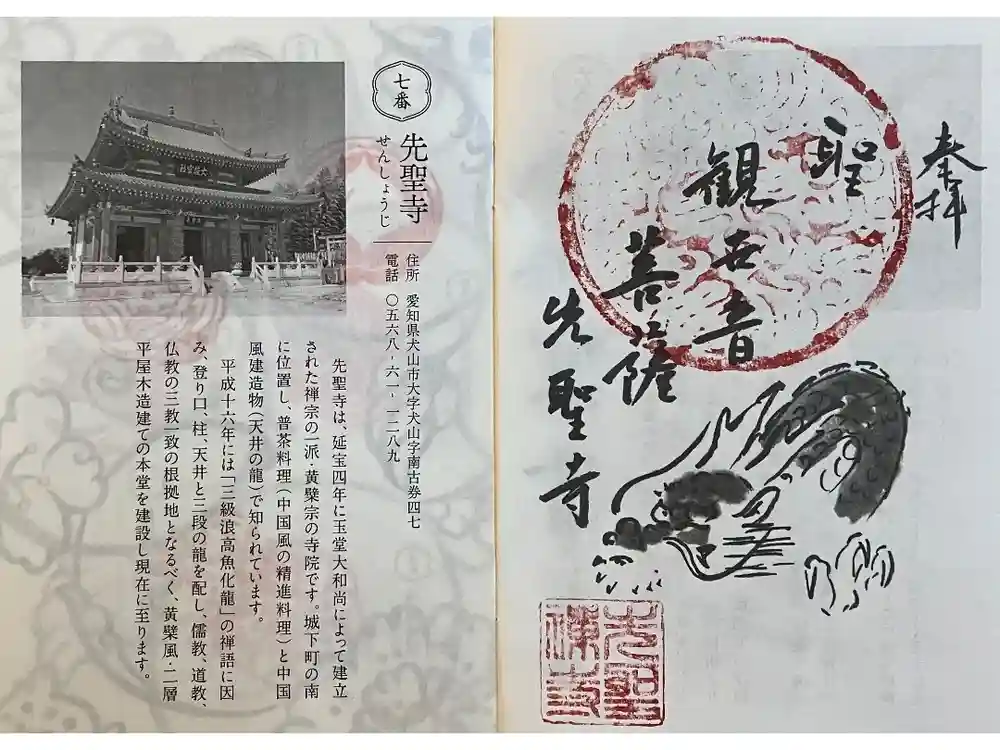 七番
先聖寺
せんしょうじ
住所 愛知県犬山市大字犬山字南古券四七
電話 〇五六八-六一-一二八九
先聖寺は、延宝四年に玉堂大和尚によって建立
された禅宗の一派・黄檗宗の寺院です。城下町の南
に位置し、普茶料理(中国風の精進料理)と中国
風建造物(天井の龍)で知られています。
平成十六年には「三級浪高魚化龍」の禅語に因
み、登り口、柱、天井と三段の龍を配し、儒教、道教、
仏教の三教一致の根拠地となるべく、黄檗風・二層
平屋木造建ての本堂を建設し現在に至ります。
奉拝
聖
観世音
菩薩
先聖寺
先聖
禅寺